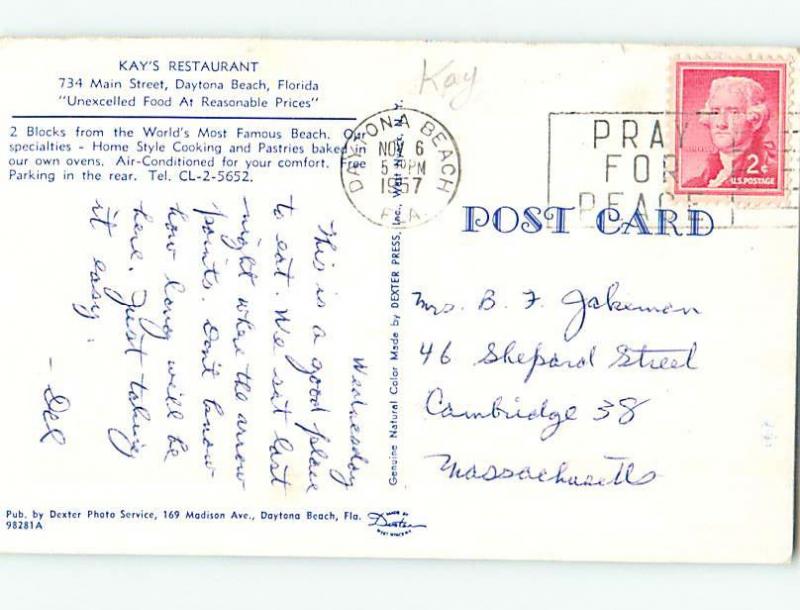 KAY'S RESTAURANT
734 Main Street, Daytona Beach, Florida
"Unexcelled Food At Reasonable Prices"
2 Blocks from the World's Most Famous Beach. Our
specialties - Home Style Cooking and Pastries baked in
our own ovens. Air-Conditioned for your comfort. Free
Parking in the rear. Tel. CL-2-5652.
Wednesday
This is a good place
to eat. We sit last
night where the arrow
points. Don't know
how long will be
here. Just taking
it easy.
- Del
Pub. by Dexter Photo Service, 169 Madison Ave., Daytona Beach, Fla.
98281A
MADE BY
Dexter
WEST NYACK N.Y.
Genuine Natural Color Made by DEXTER PRESS, Inc. West Nyack, N.Y.
Kay
DAYTONA BEACH
NOV 6
5 PM
1957
FLA.
PRAY
FOR
PEACE
2¢
U.S. POSTAGE
POST CARD
Mrs. B. F. Jakeman
46 Shepard Street
Cambridge 38
Massachusetts